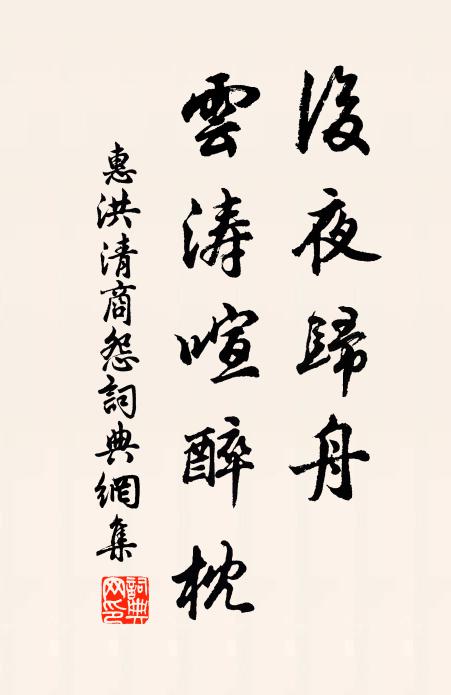 後夜歸舟
雲濤喧醉枕
惠洪清商怨詞典網集
詞典網印